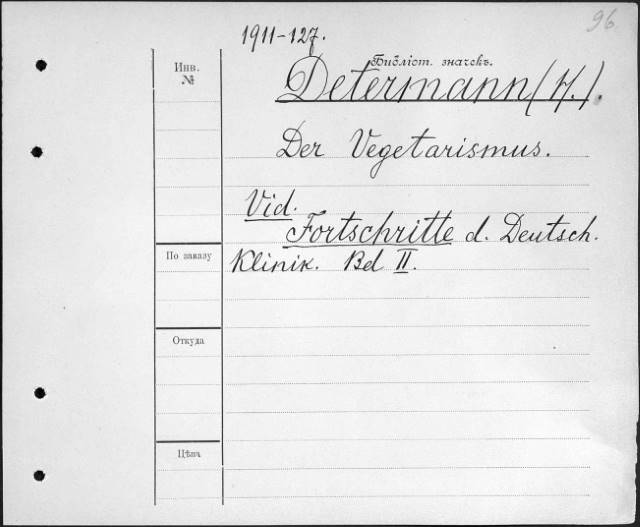 96.
1911-127.
Библіот. значекъ.
Инв.
№
Determann (H.).
Der Vegetarismus.
Vid.
Fortschritte d. Deutsch.
По заказу
Klinik. Bd II.
Откуда
Цѣна